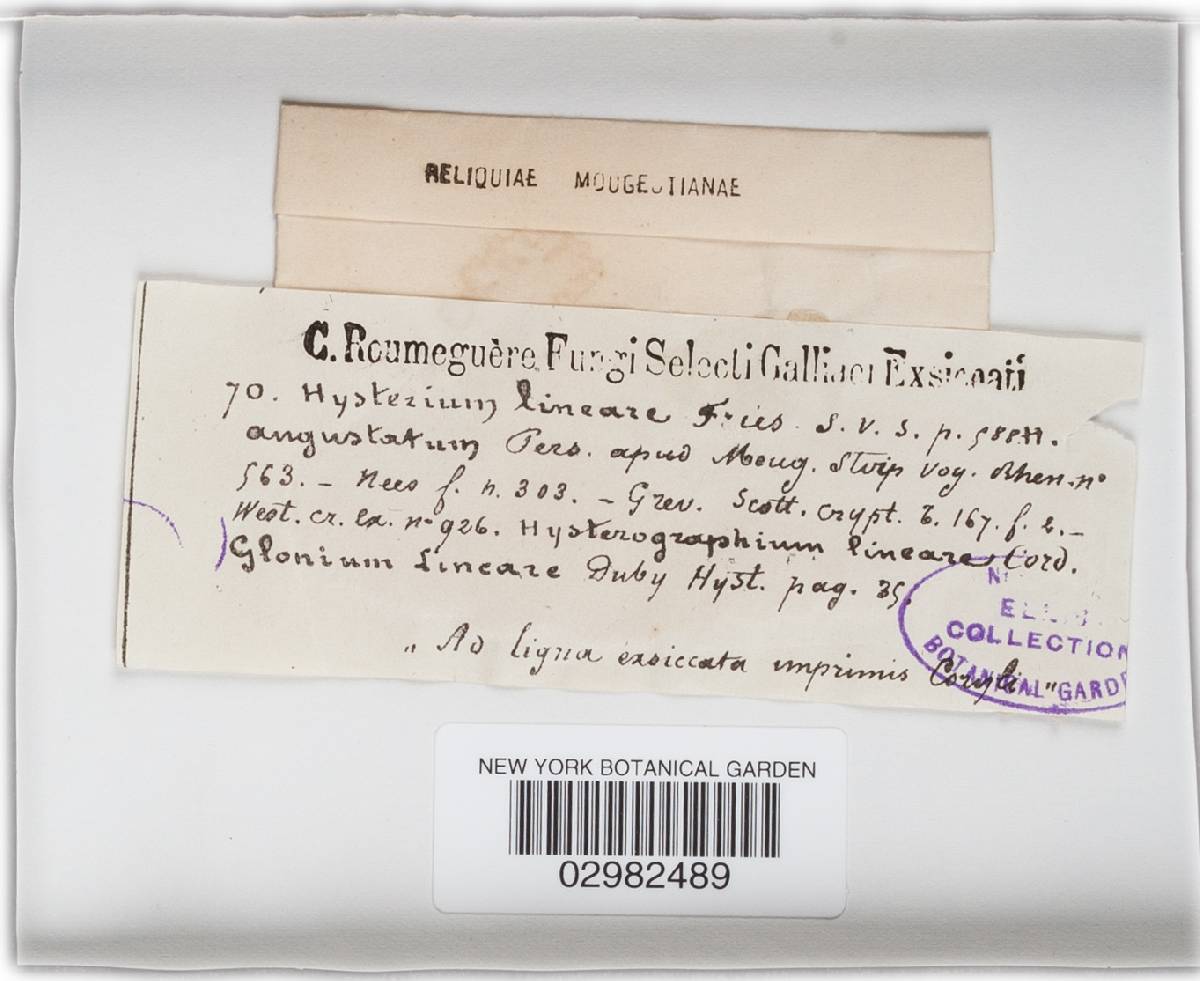 RELIQUIAE MOUGEOTIANAE
C. Roumeguère Fungi Selecti Galliaci Exsiccati
70. Hysterium lineare Fries. S. V. S. p.
angustatum Pers. apud Moug. Stirp Vog. Rhen. nº
563. - Nees f. n. 303. - Grev. Scott. crypt. t. 167. f. 2. -
West. cr. ex. nº 926. Hysterographium lineare Cord.
Glonium Lineare Duby Hyst. pag. 35.
" Ad ligna exsiccata imprimis Coryli "
COLLECTION
BOTANICAL GARDE
NEW YORK BOTANICAL GARDEN
02982489